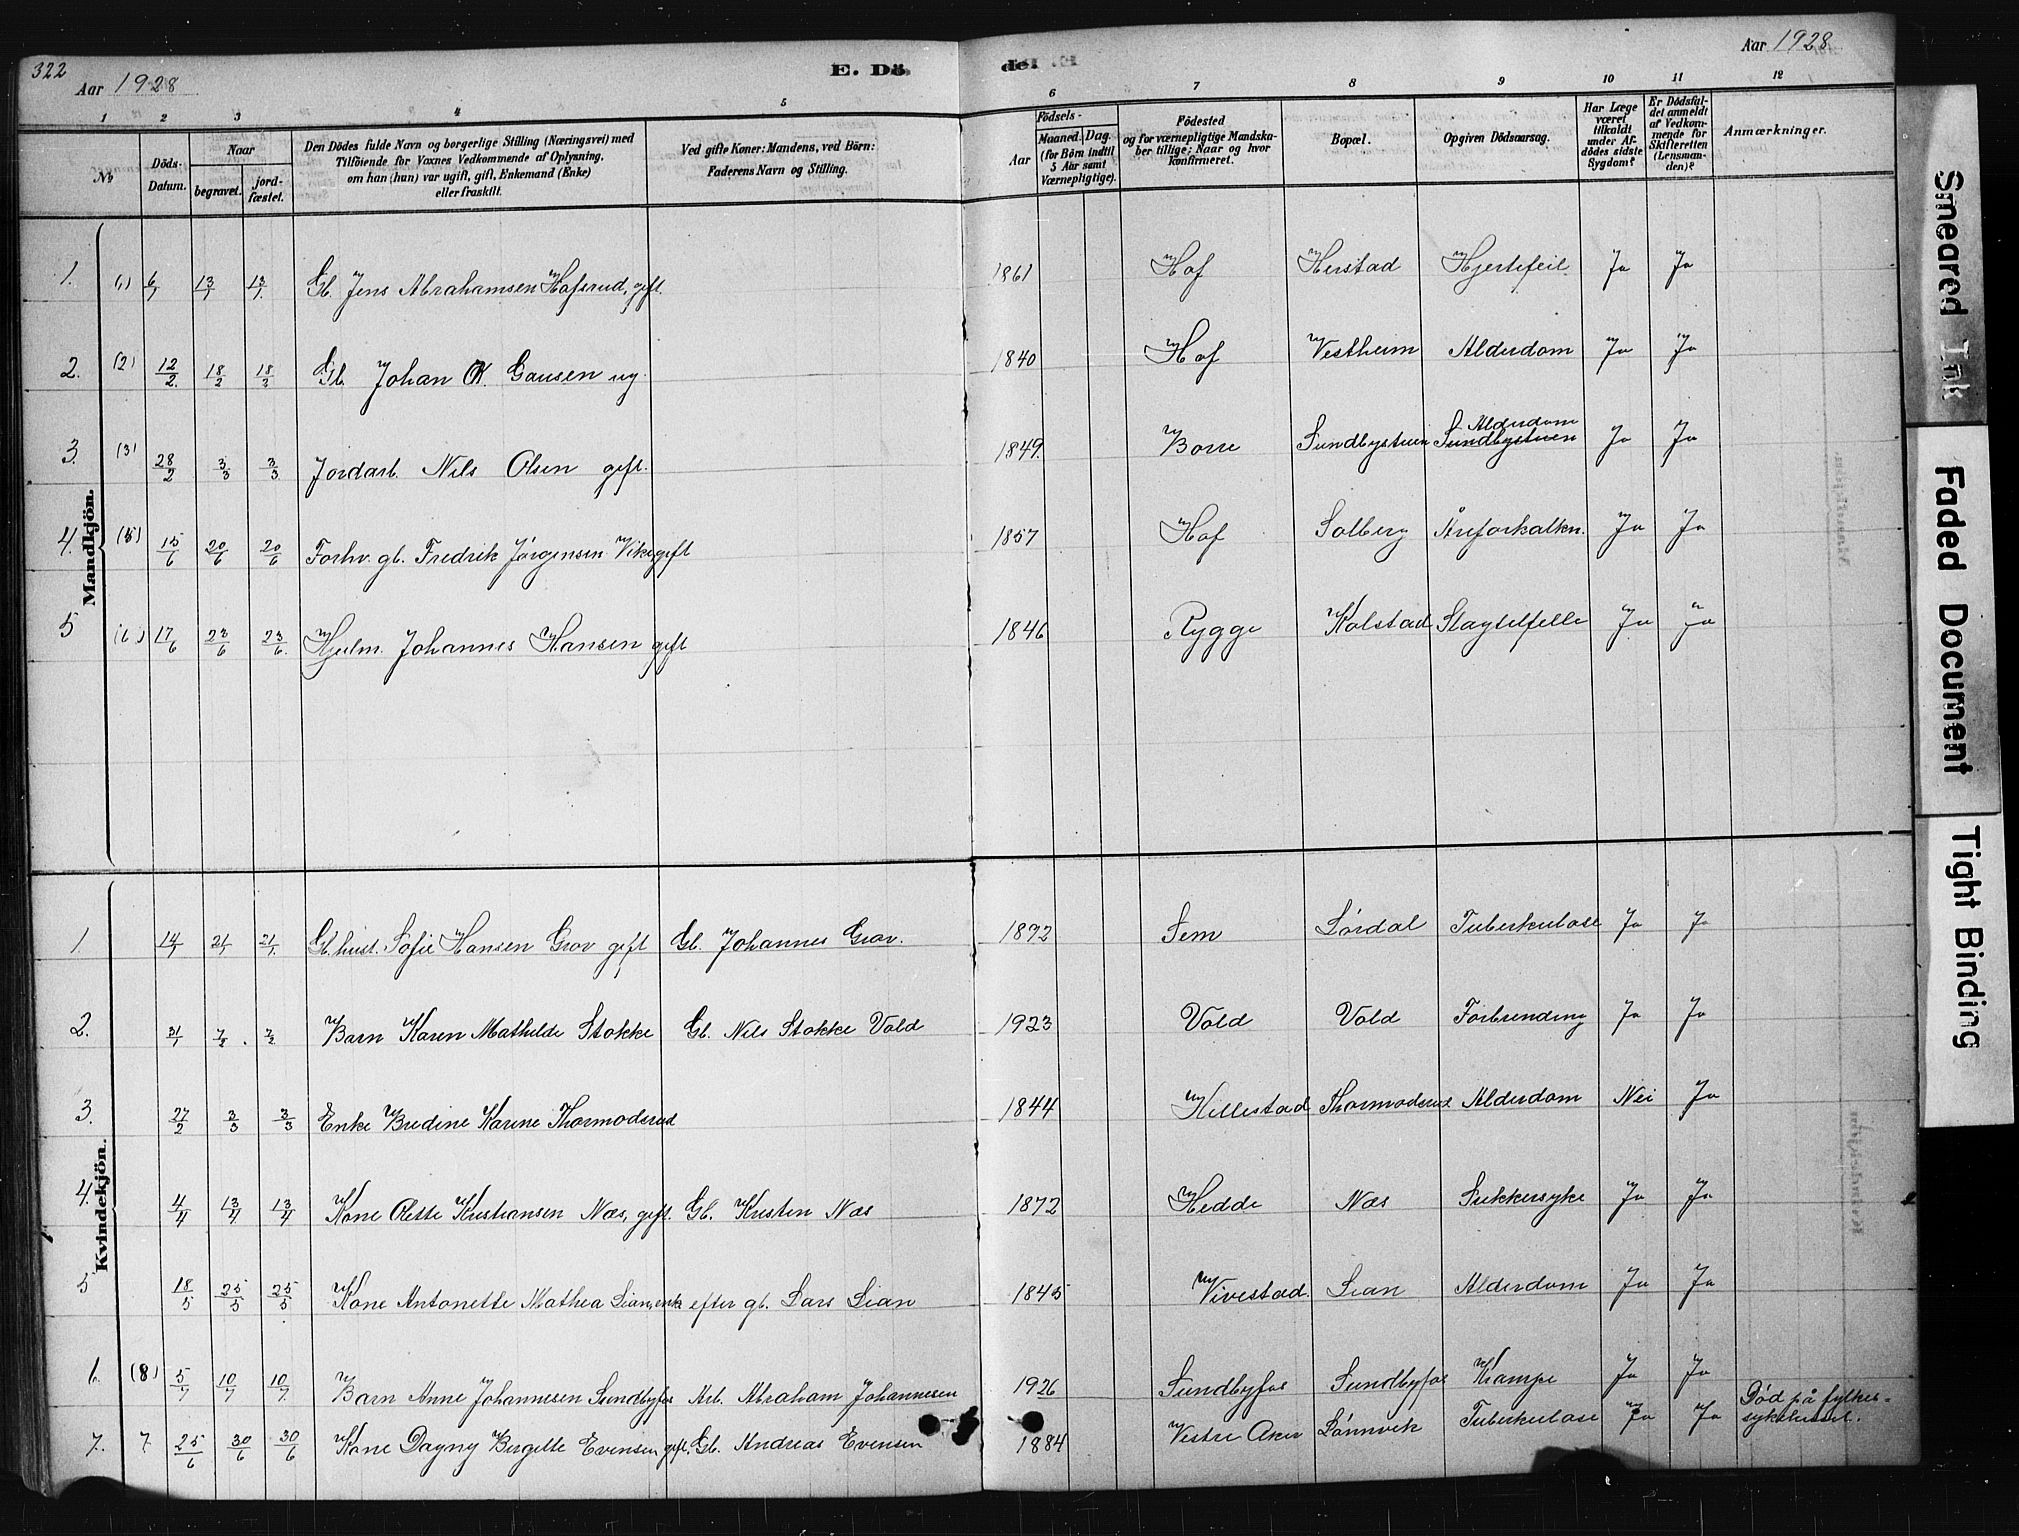 322
Aar 1928
E. Dö
de
Aar 1928
1 2 3 4 5 6 7 8 9 10 11 12
No
Döds-Datum.
Naar
begravet.
jord-fæstet.
Den Dödes fulde Navn og borgerlige Stilling (Næringsvei) med
Tilföiende for Voxnes Vedkommende af Oplysning,
om han (hun) var ugift, gift, Enkemand (Enke)
eller fraskilt.
Ved gifte Koner: Mandens, ved Börn:
Faderens Navn og Stilling.
Födsels-
Aar
Maaned. Dag.
(for Börn indtil
5 Aar samt
Værnepligtige).
Födested
og for værnepligtige Mandska-
ber tillige: Naar og hvor
konfirmeret.
Bopæl.
Opgiven Dödsaarsag.
Har Læge
været
tilkaldt
under Af-
dödes sidste
Sygdom?
Er Dödsfal-
det anmeldt
af Vedkom-
mende for
Skifteretten
(Lensman-
den)?
Anmærkninger.
Mandkjön.
1. (1) 6/1 13/1 13/1. Gb. Jens Abrahamsen Hofsrud, gift. 1861 Hof Herstad Hjertefeil Ja Ja
2. (2) 12/2 18/2 18/3 Gb. Johan Gausen ug. 1840 Hof Vestheim Alderdom Ja Ja
3. (3) 28/2 3/3 3/3 Jordarb. Nils Olsen gift. 1849. Borre Sundbystuen Sundbystuen Alderdom Ja Ja
4. (5) 15/6 20/6 20/6 Forhv. gb. Fredrik Jørgensen Vike gift 1857 Hof Solberg Åreforkalkn. Ja Ja
5 (6) 17/6 23/6 23/6. Hjulm. Johannes Hansen gift 1846 Rygge Kolstad Slagtilfelle Ja Ja
Kvindekjön.
1. 14/1 21/1 21/1. Gb. hust. Sofie Hansen Grov gift Gb. Johannes Grov. 1892 Sem Sørdal Tuberkulose Ja Ja
2. 31/1 7/2. 7/2 Barn Karen Mathilde Stokke Gb. Nils Stokke Vold 1923 Vold Vold Forbrending Ja Ja
3. 27/2 3/3 3/3 Enke Bredine Karine Thormodsrud 1844 Hillestad Thormodsrud Alderdom Nei Ja
4. 4/4 13/4 13/4 Kone Olette Kristiansen Næs, gift. Gb. Kristen Næs 1872 Hedde Næs Sukkersyke Ja Ja
5 18/5 25/5 25/5 Kone Antonette Mathea Lian, enk efter gb. Lars Lian 1845 Vivestad. Lian Alderdom Ja Ja
6. (8) 5/7 10/7 10/7. Barn Anne Johannesen Sundbyfos Arb. Abraham Johannesen 1926 Sundbyfos Sundbyfos Krampe Ja Ja
7. 7. 25/6 30/6 30/6 Kone Dagny Bergitte Evensen, gift. Gb. Andreas Evensen 1884 Vestre Aker Lønnvik Tuberkulose Ja Ja Død på fylkes-
sykehuset.
Smeared Ink
Faded Document
Tight Binding